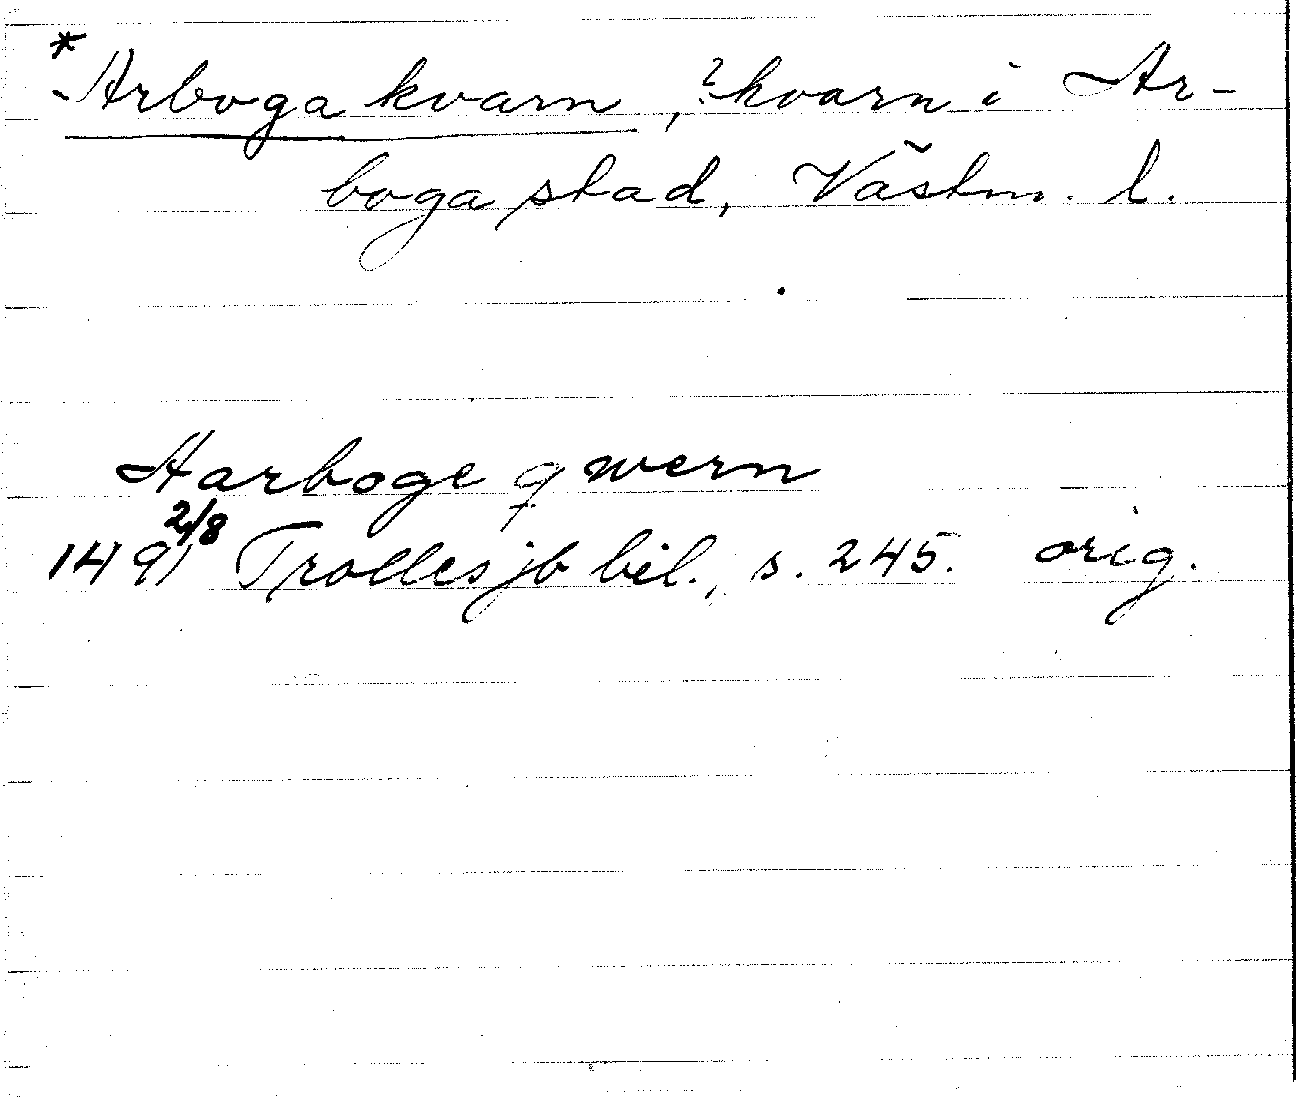 * Arboga kvarn, ? kvarn i Ar-
boga stad, Västm. l.
Aarboge qwern
1491 2/8 Trolles jb bil., s. 245. orig.